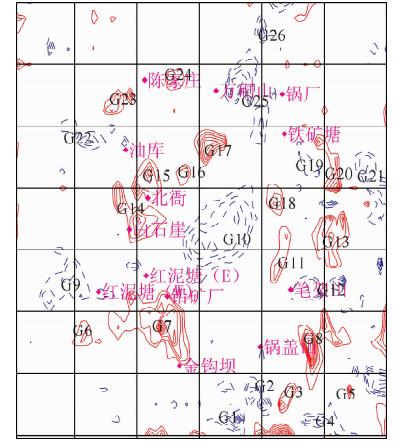 G26
陈家庄
G24
万硐山
锅厂
G23
G25
铁矿塘
G22
油库
G17
G19
G15
G16
G20
G21
北衙
G14
G18
白石崖
G10
G13
G11
红泥塘（E）
G9
红泥塘
G12
G7
G6
G8
锅盖山
金钩坝
G2
G3
G5
G1
G4